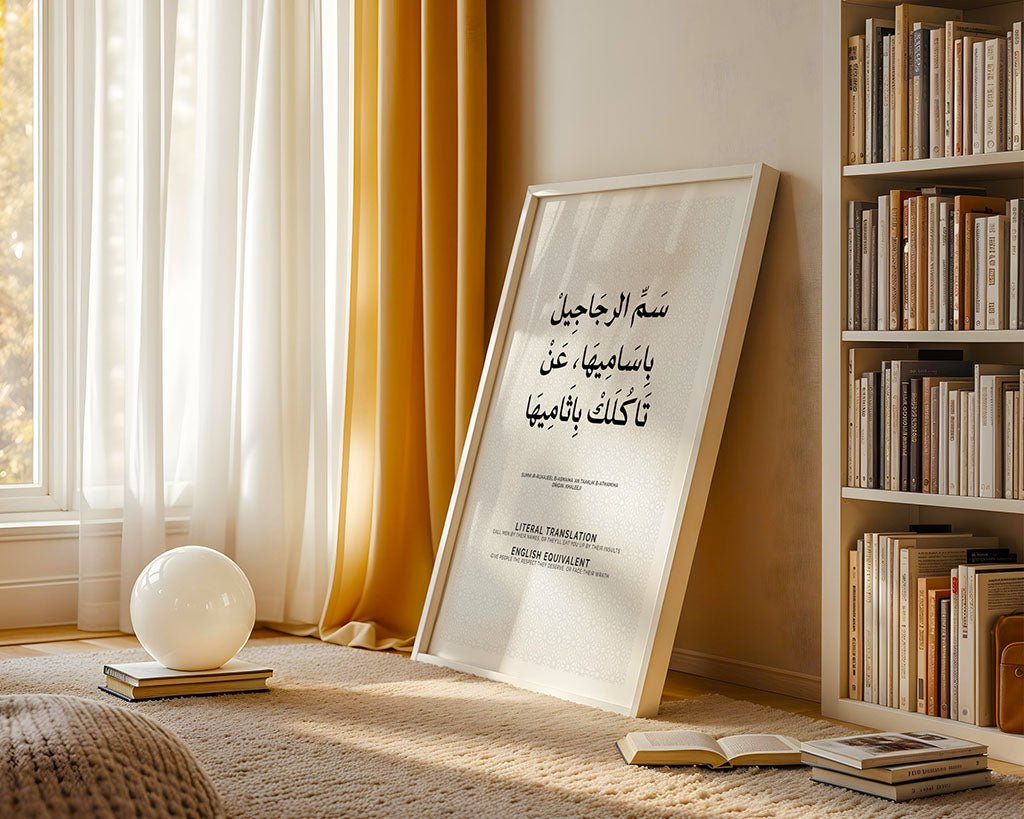 سَمِّ الرجَاجِيلْ
بِاسَامِيهَا، عَنْ
تَاكُلَكْ بِاثَامِيهَا
SUMM IR-RIJAJEEL B-ASMAIHA 'AN TAAKLIK B-ATHAMIHA
ORIGIN: KHALEEJI
LITERAL TRANSLATION
CALL MEN BY THEIR NAMES, OR THEY'LL EAT YOU UP BY THEIR INSULTS
ENGLISH EQUIVALENT
GIVE PEOPLE THE RESPECT THEY DESERVE, OR FACE THEIR WRATH